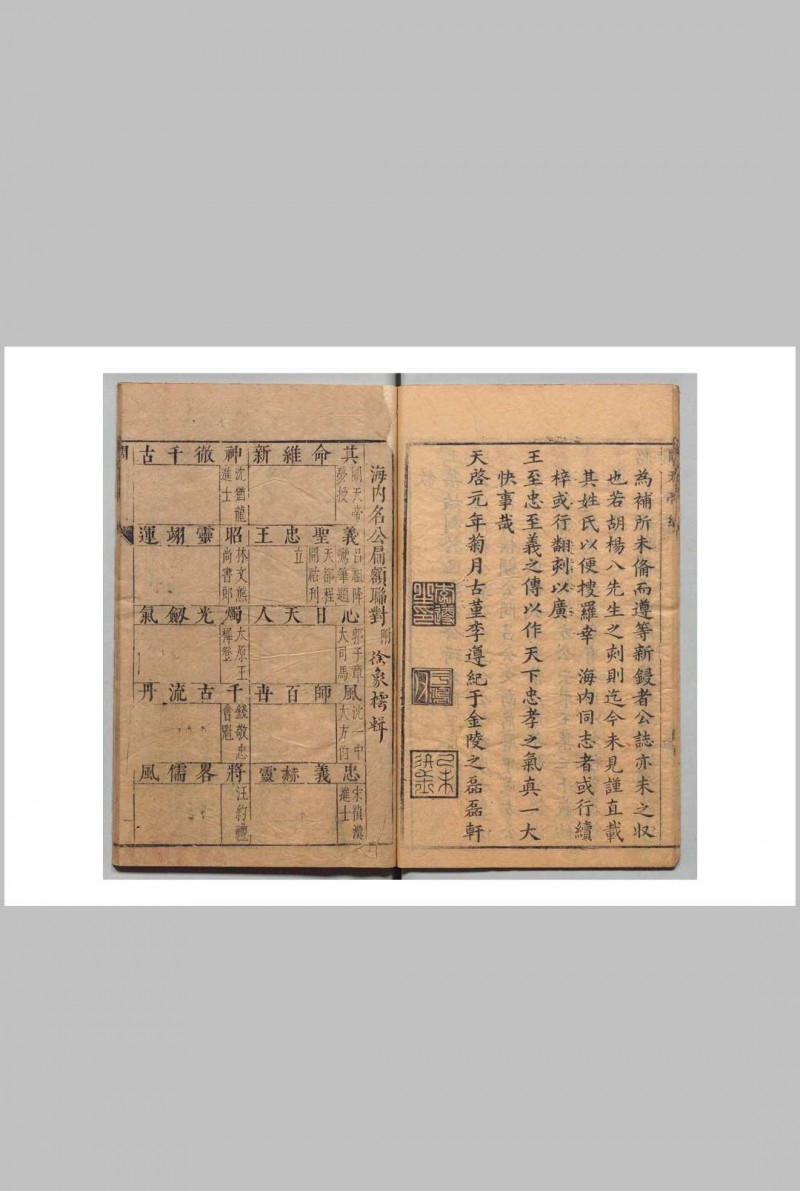 為補所未偹而遵等新鋟者公誌亦未之収
也若胡楊八先生之刻則迄今未見謹直載
其姓氏以便搜羅幸　海内同志者或行續
梓或行翻刻以廣
王至忠至義之傳以作天下忠孝之氣真一大
快事哉
天啓元年菊月古堇李遵紀于金陵之磊磊軒
海内名公扁額聯對附　徐象橒輯
其命維新
關天帝
夢授
神徹千古
沈猶龍
進士
義聖忠王
呂祖降
鸞筆題
天都程
開祜刋
立
昭靈翊運
林文熊
尚書郎
心日天人
郭子章
大司馬
燭光劔氣
太原王
穉登
風師百卋
沈一中
大方伯
千古流丹
錢敬忠
會魁
忠義赫靈
宋禎漢
進士
將畧儒風
汪約禮